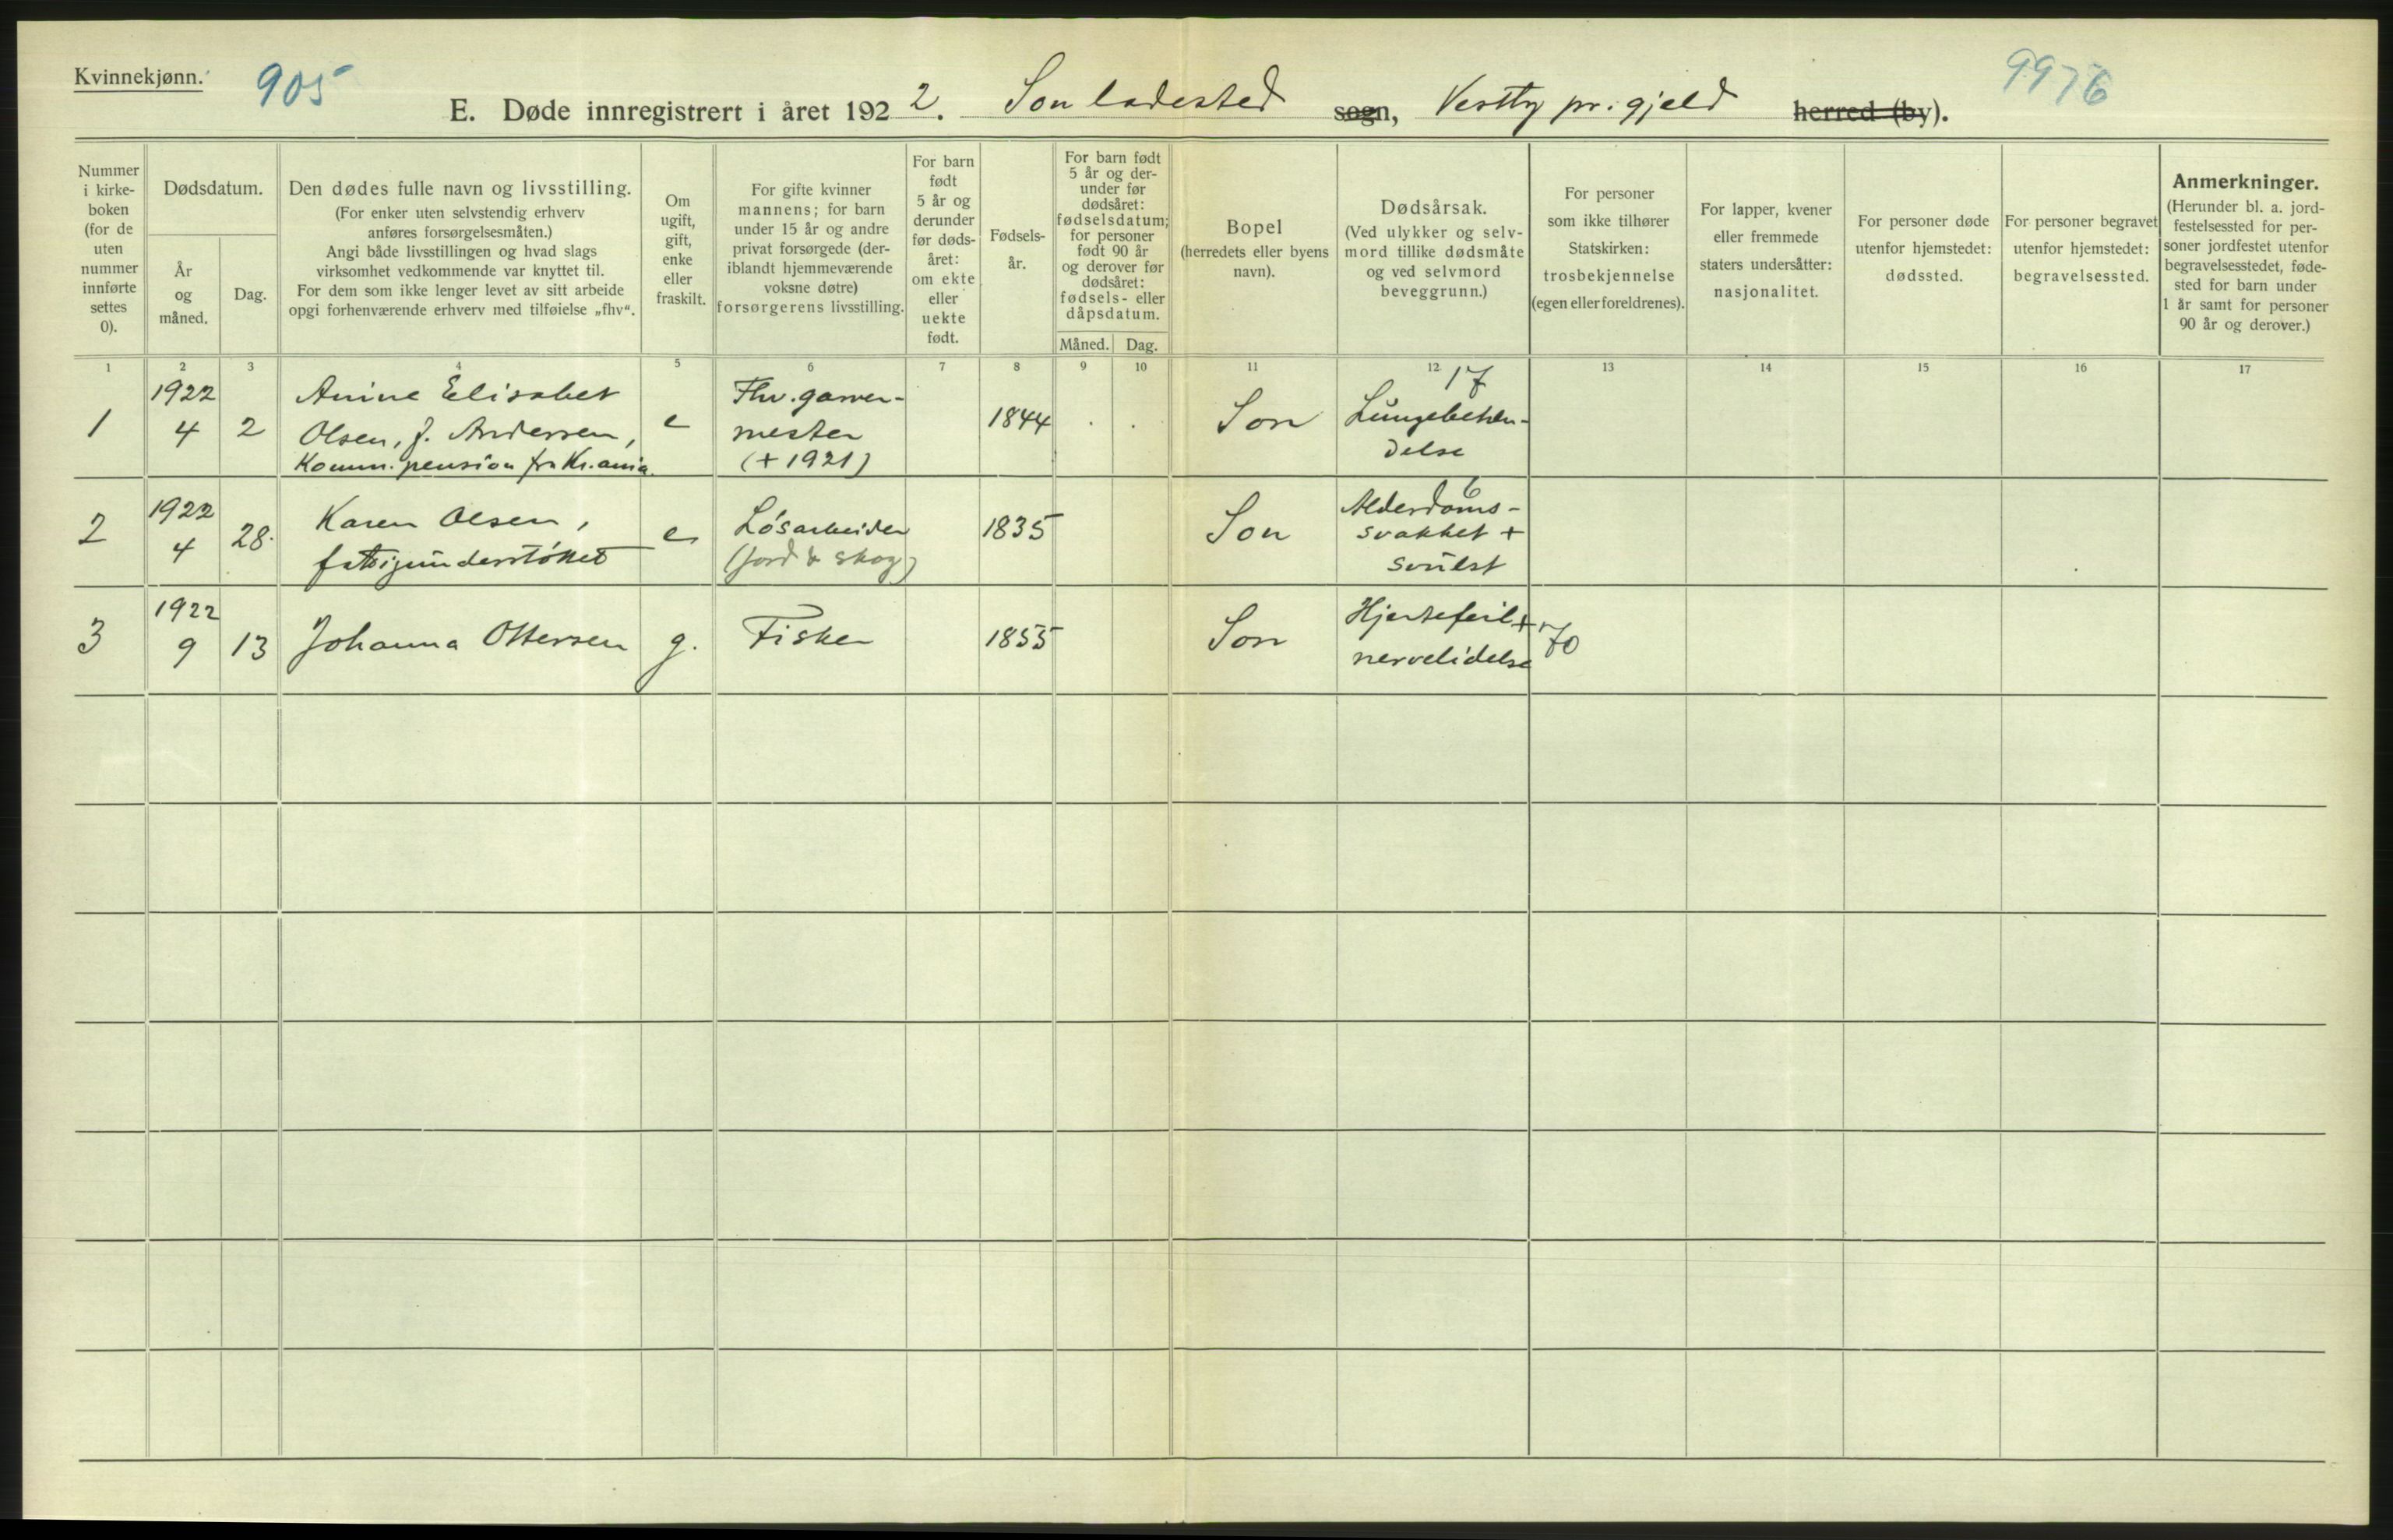 Kvinnekjønn.
905
9976
E. Døde innregistrert i året 1922. Son ladested sogn, Vestby pr.gjeld herred (by).
Nummer
i kirke-
boken
(for de
uten
nummer
innførte
settes
0).
Dødsdatum.
År
og
måned.
Dag.
Den dødes fulle navn og livsstilling.
(For enker uten selvstendig erhverv
anføres forsørgelsesmåten.)
Angi både livsstillingen og hvad slags
virksomhet vedkommende var knyttet til.
For dem som ikke lenger levet av sitt arbeide
opgi forhenværende erhverv med tilføielse „fhv“.
Om
ugift,
gift,
enke
eller
fraskilt.
For gifte kvinner
mannens; for barn
under 15 år og andre
privat forsørgede (der-
iblandt hjemmeværende
voksne døtre)
forsørgerens livsstilling.
For barn
født
5 år og
derunder
før døds-
året:
om ekte
eller
uekte
født.
Fødsels-
år.
For barn født
5 år og der-
under før
dødsåret:
fødselsdatum;
for personer
født 90 år
og derover før
dødsåret:
fødsels- eller
dåpsdatum.
Måned. Dag.
Bopel
(herredets eller byens
navn).
Dødsårsak.
(Ved ulykker og selv-
mord tillike dødsmåte
og ved selvmord
beveggrunn.)
For personer
som ikke tilhører
Statskirken:
trosbekjennelse
(egen eller foreldrenes).
For lapper, kvener
eller fremmede
staters undersåtter:
nasjonalitet.
For personer døde
utenfor hjemstedet:
dødssted.
For personer begravet
utenfor hjemstedet:
begravelsessted.
Anmerkninger.
(Herunder bl. a. jord-
festelsessted for per-
soner jordfestet utenfor
begravelsesstedet, føde-
sted for barn under
1 år samt for personer
90 år og derover.)
1 2 3 4 5 6 7 8 9 10 11 12 13 14 15 16 17
1
1922
4
2
Anine Elisabet
Olsen, f. Andersen,
Komm. pension fra Kr.ania.
e
Fhv. garver-
mester
(+ 1921)
1844
Son
17
Lungebeten-
delse
2
1922
4
28.
Karen Olsen,
fattigunderstöttet
e
Lösarbeider
(jord & skog)
1835
Son
6
Alderdoms-
svakhet +
svulst
3
1922
9
13
Johanna Ottersen
g.
Fisker
1855
Son
Hjertefeil +
nervelidelse
70